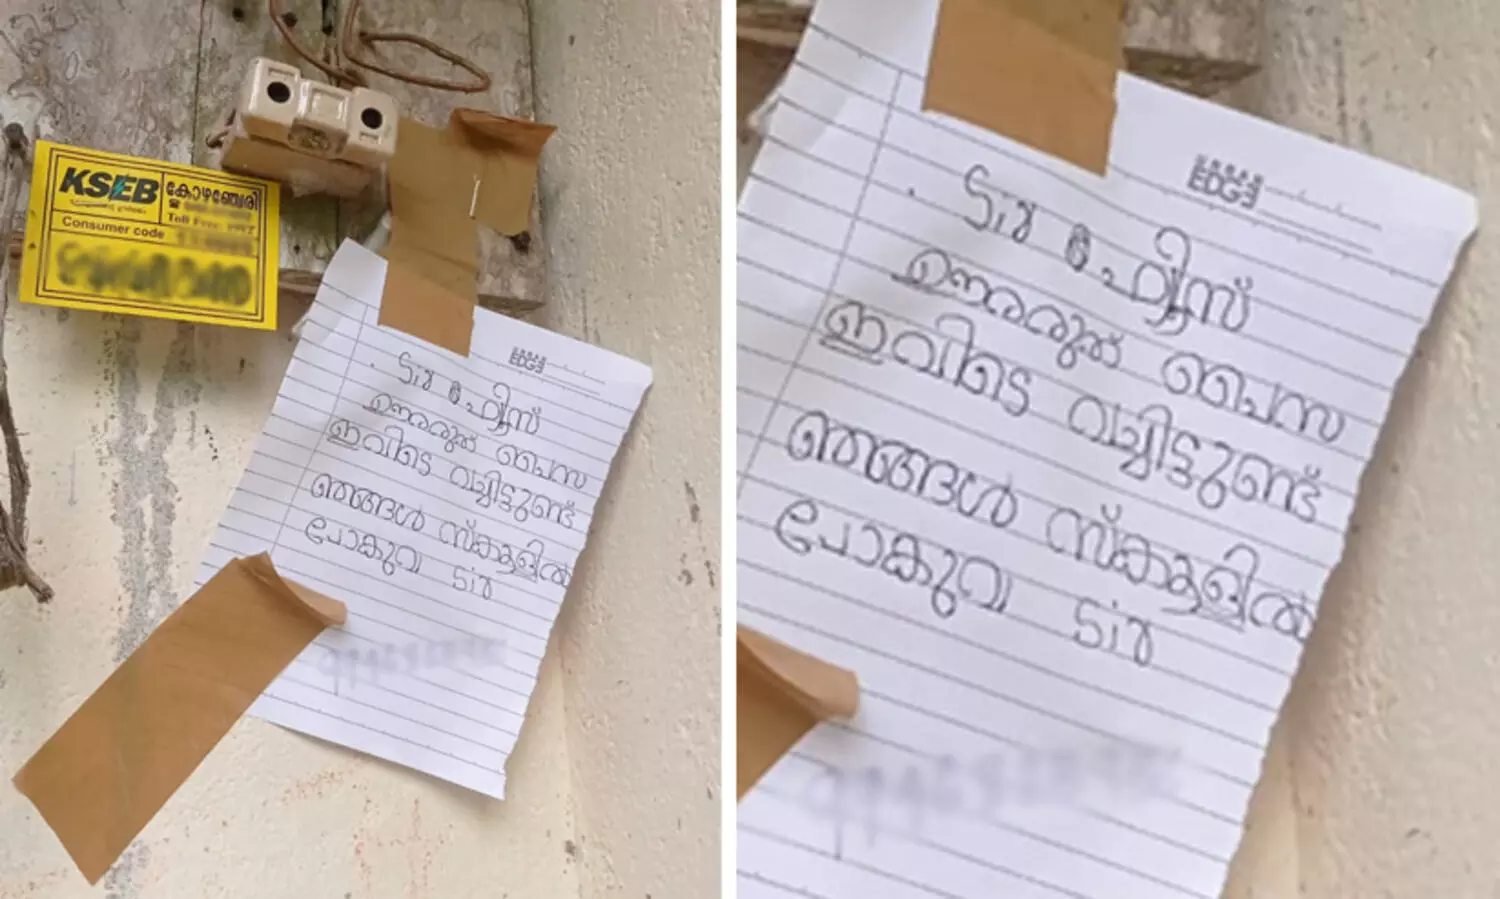 KSEB കോഴഞ്ചേരി
Toll Free: 1912
Consumer code
EDGE
Sir ഫ്യൂസ്
ഊരരുത് പൈസ
ഇവിടെ വച്ചിട്ടുണ്ട്
ഞങ്ങൾ സ്ക്കൂളിൽ
പോകുവ Sir
EDGE
Sir ഫ്യൂസ്
ഊരരുത് പൈസ
ഇവിടെ വച്ചിട്ടുണ്ട്
ഞങ്ങൾ സ്ക്കൂളിൽ
പോകുവ Sir